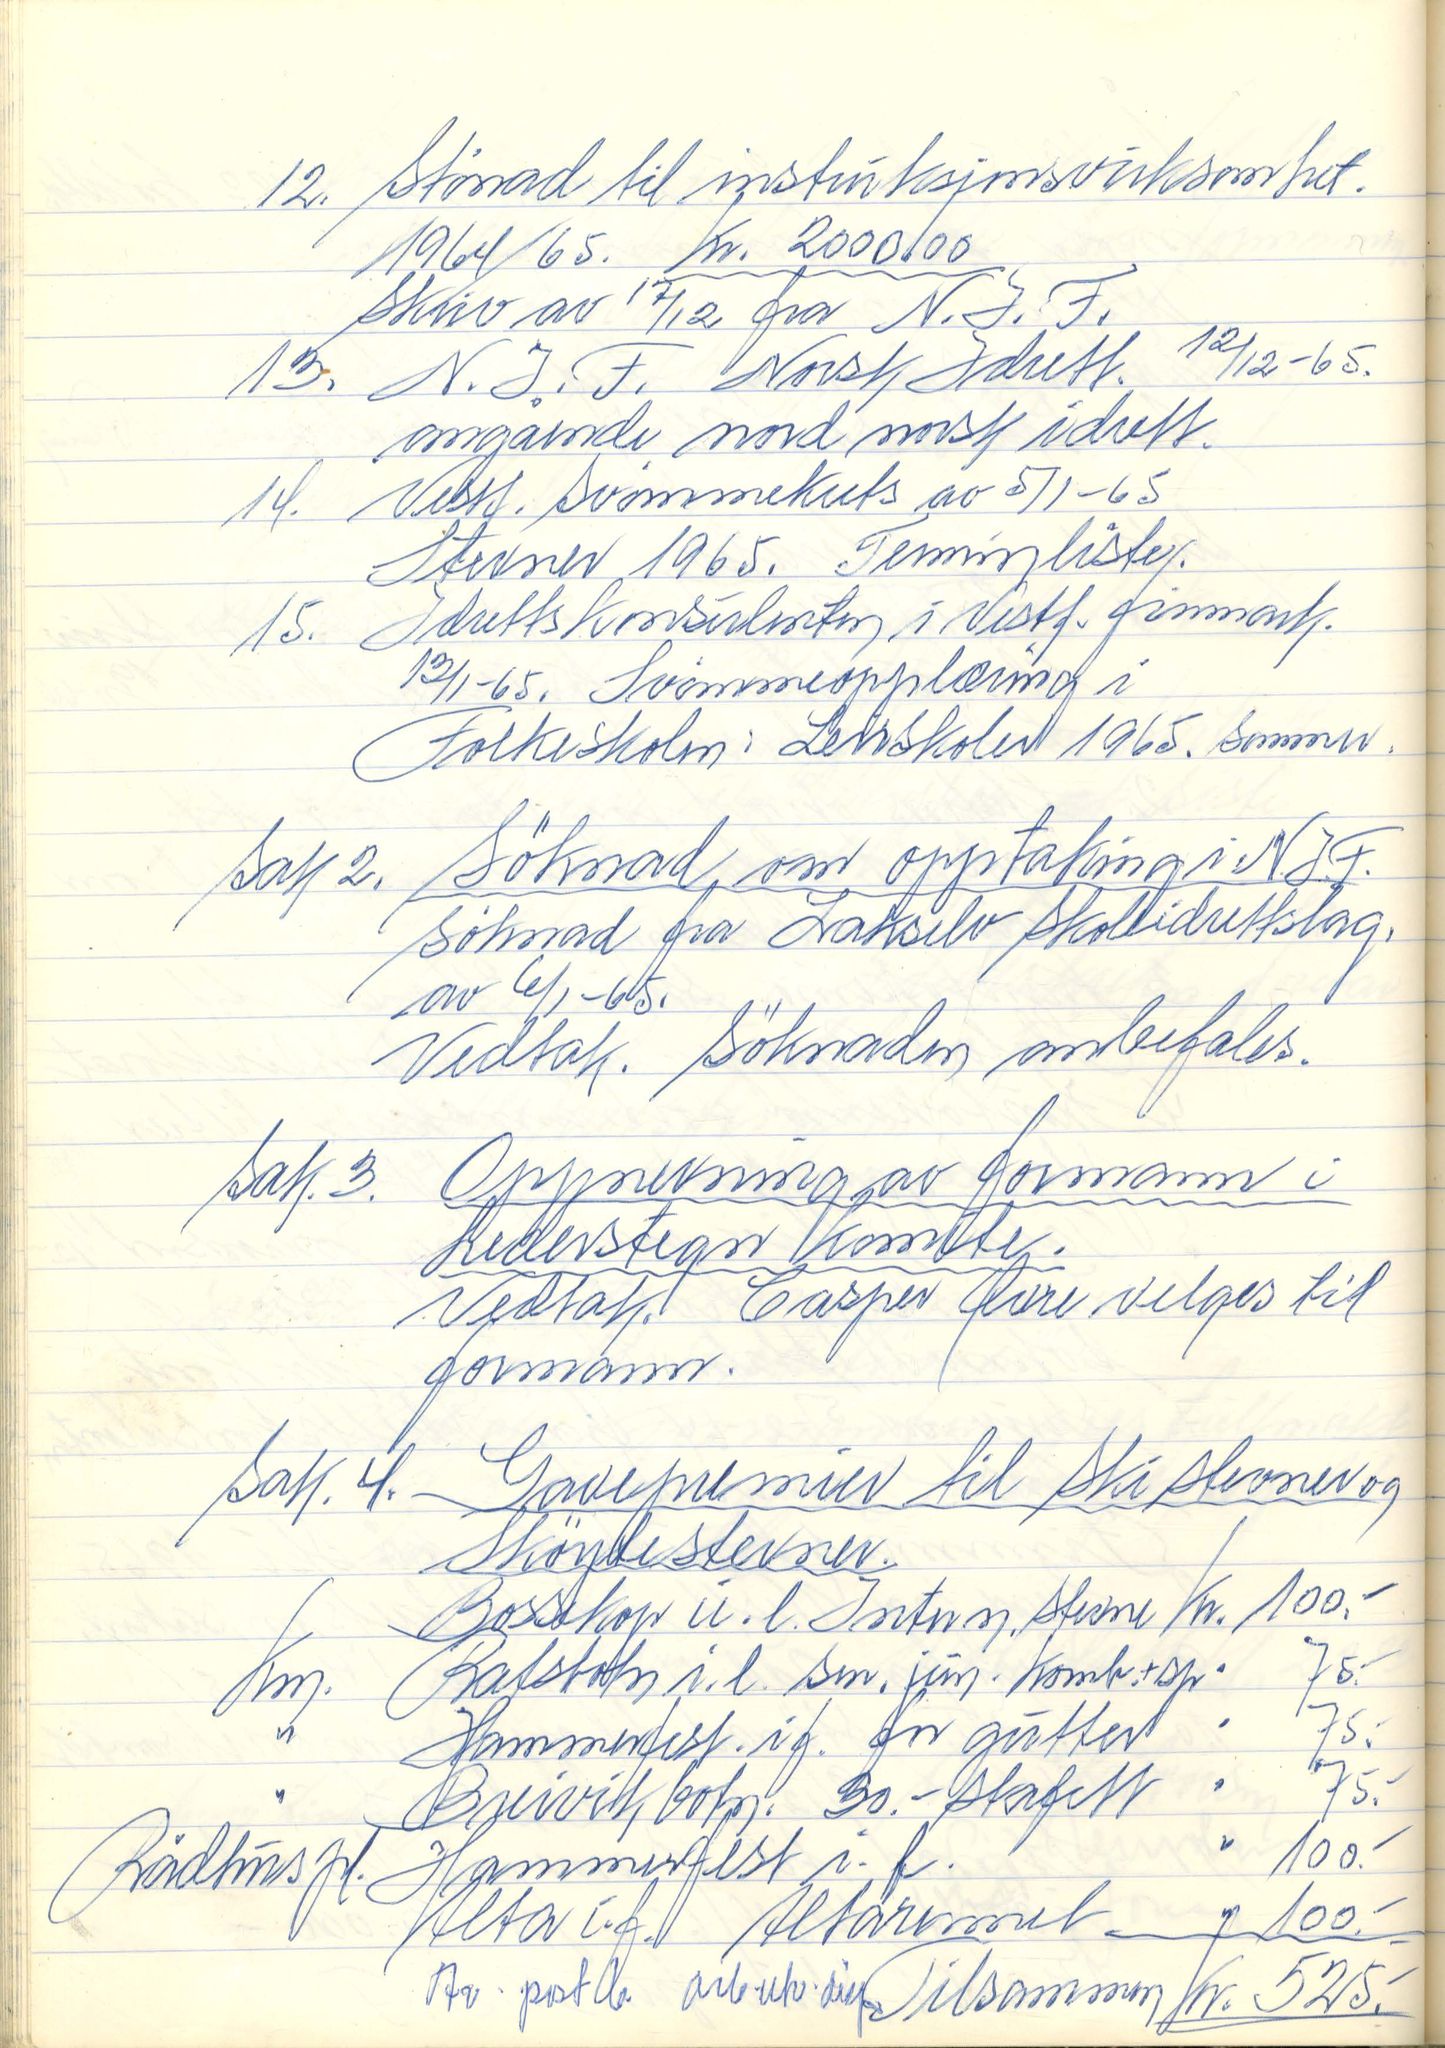 12. Stönad til instruksjonsvirksomhet.
1964/65. Kr. 2000.00
Skriv av 17/12 fra N.I.F.
13. N.I.F. Norsk Idrett. 12/12-65.
angående nord norsk idrett.
14. Vestf. Svömmekrets av 5/1-65
Stevner 1965. Terminlister.
15. Idrettskonsulenten i Vestf. finnmark.
13/1-65. Svömmeopplæring i
Folkeskolen: Leirskoler 1965. Sommer.
Sak 2. Söknad om opptaking i N.I.F.
Söknad fra Lakselv Skoleidrettslag.
av 6/1-65.
Vedtak. Söknaden anbefales.
Sak. 3. Oppnevning av formann i
Lederstegn Komite.
Vedtak. Casper velges til
formann.
Sak. 4. Gavepremier til Ski stevner og
Sköytestevner.
Bossekop u.l. Intern. stevne Kr. 100.-
Km. Rafsbotn i.l. sen. jun. Komb. + sp. " 75.-
" Hammerfest. i.f. for gutter " 75.-
" Breivikbotn. 30.- Stafett " 75.-
Rådhuspl. Hammerfest i.f. " 100.-
Alta i.f. Altarennet " 100.-
Av post Tilsammen Kr. 525.-